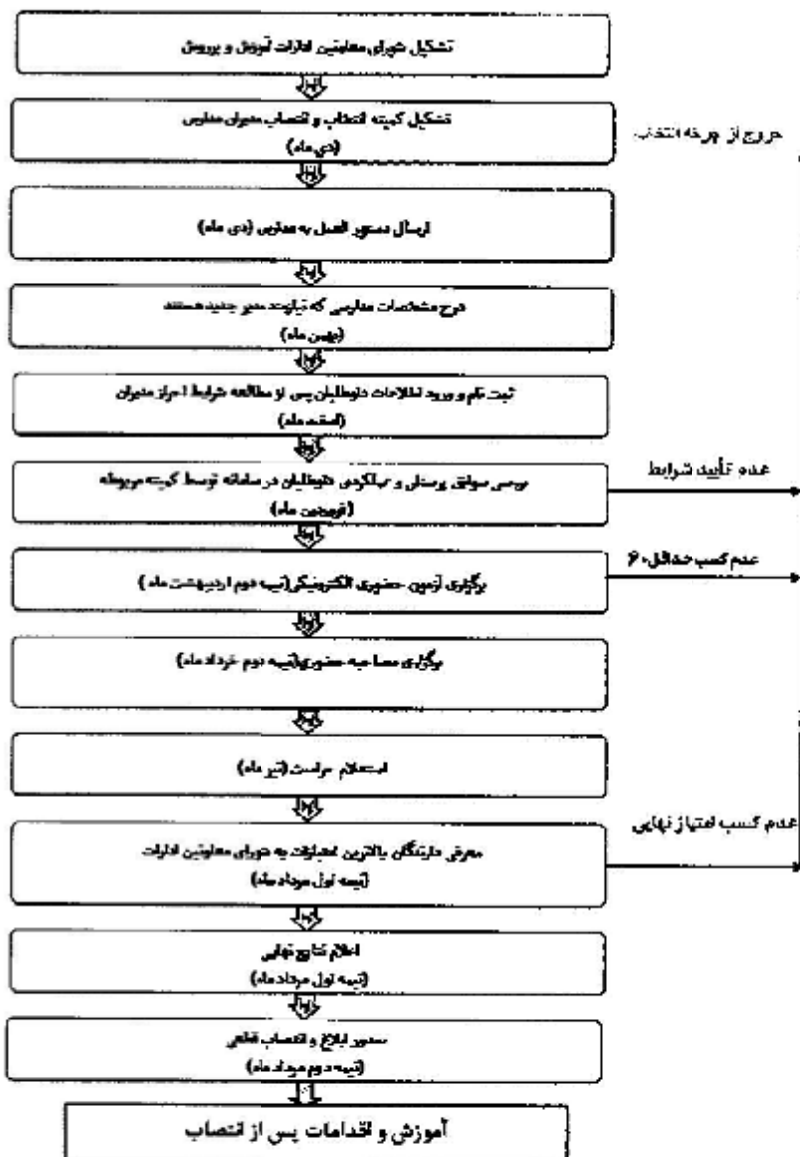 تشکیل شورای معاونین ادارات آموزش و پرورش
تشکیل کمیته انتخاب و انتصاب مدیران مدارس
(دی ماه)
خروج از چرخه انتخاب
ارسال دستور العمل به مدارس (دی ماه)
درج مشخصات مدارسی که نیازمند مدیر جدید هستند
(بهمن ماه)
ثبت نام و ورود اطلاعات داوطلبان پس از مطالعه شرایط احراز مدیران
(اسفند ماه)
بررسی سوابق پرسنلی و عملکردی داوطلبان در سامانه توسط کمیته مربوطه
(فروردین ماه)
عدم تأیید شرایط
برگزاری آزمون حضوری الکترونیکی(نیمه دوم اردیبهشت ماه )
عدم کسب حداقل ۶۰
برگزاری مصاحبه حضوری(نیمه دوم خرداد ماه)
استعلام حراست(تیر ماه)
معرفی دارندگان بالاترین امتیازات به شورای معاونین ادارات
(نیمه اول مرداد ماه)
عدم کسب امتیاز نهایی
اعلام نتایج نهایی
(نیمه اول مرداد ماه)
صدور ابلاغ و انتصاب قطعی
(نیمه دوم مرداد ماه)
آموزش و اقدامات پس از انتصاب